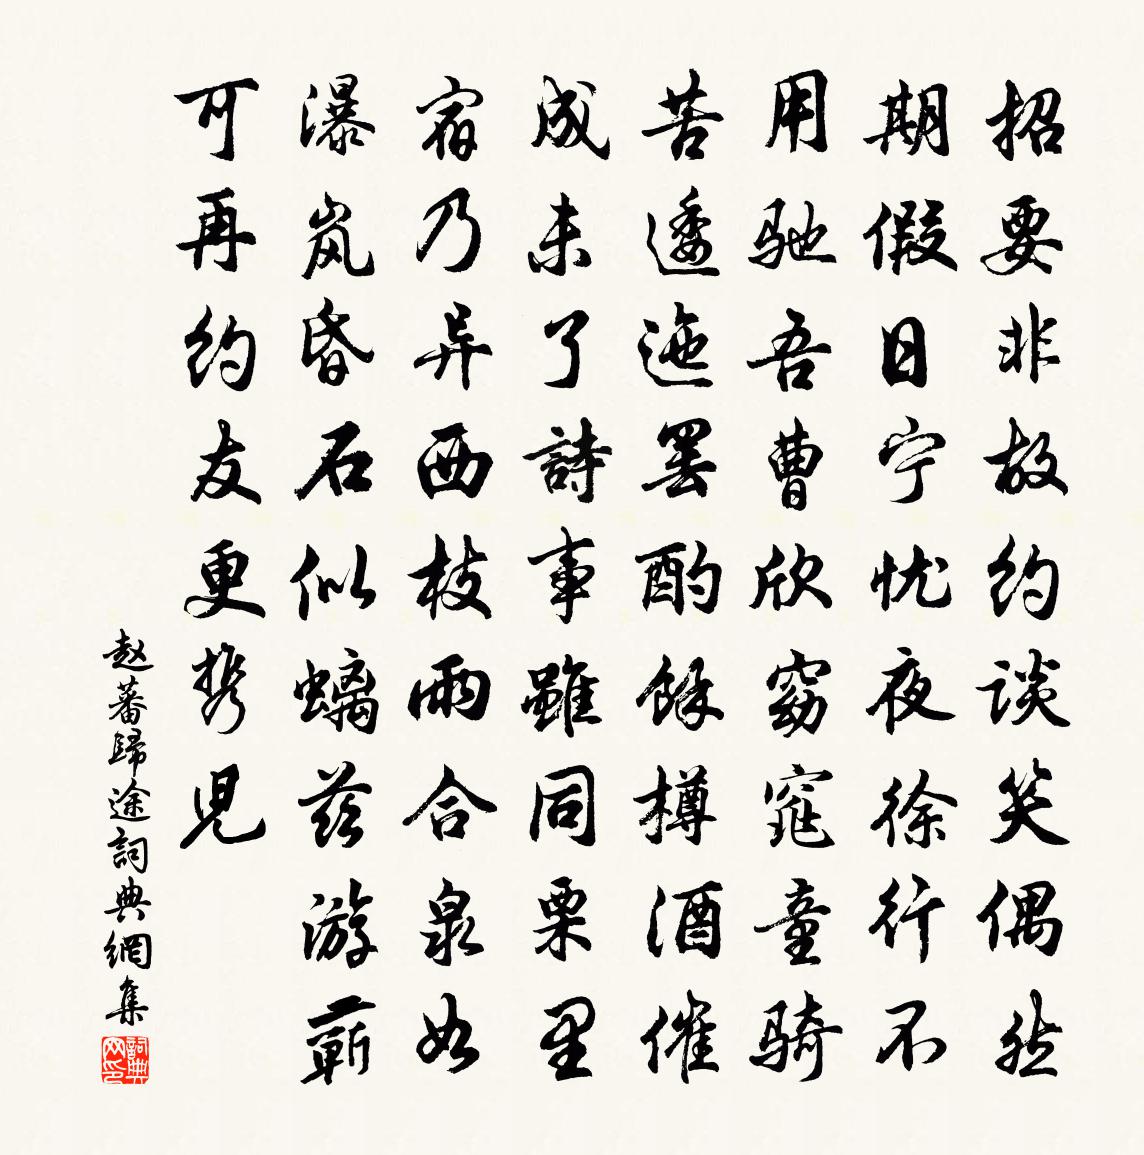 招要非故约谈笑偶然
期假日宁忧夜徐行不
用驰吾曹欣窈窕童骑
苦逶迤罢酌餘樽酒催
成未了詩事雖同栗里
宿乃异西枝雨合泉如
瀑岚昏石似螭兹游蕲
可再约友更携児
赵蕃歸途詞典網集
詞典网印